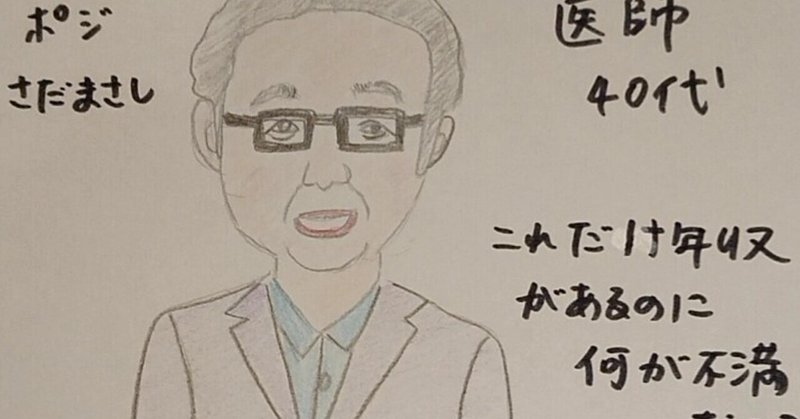 ポジ
さだまさし
医師
40代
これだけ年収
があるのに
何が不満